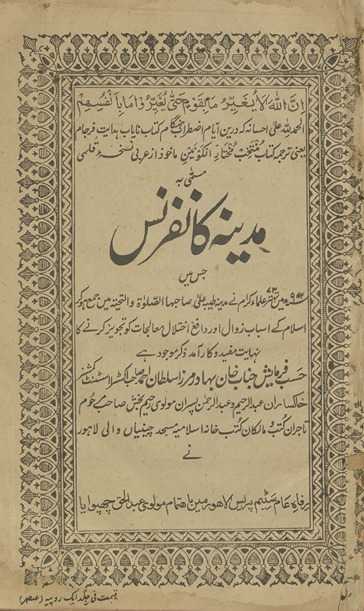 ان اللہ لا یغیر ما بقوم حتی یغیروا ما بانفسہم
الحمد للہ علی احسانہ کہ درین ایام اضطراب کتاب نایاب ہدایت فرجام
یعنی ترجمہ کتاب منتخب مختار الکونین ماخوذ از عربی نسخہ قلمی
مسمٰی بہ
مدینہ کانفرنس
جس میں
علماء کرام نے مدینہ طیبہ علی صاحبہا الصلوٰة والتحیة میں جمع ہو کر
اسلام کے اسباب زوال اور دافع اختلال معالجات کو تجویز کرنے کا
نہایت مفید و کار آمد ذکر موجود ہے
حسب فرمایش جناب خان بہادر مرزا سلطان احمد صاحب اکسٹرا اسسٹنٹ کمشنر
خاکساران عبد الرحیم و عبد الرحمٰن پسران مولوی رحیم بخش صاحب مرحوم
تاجران کتب و مالکان کتب خانہ اسلامیہ مسجد چینیاں والی لاہور
نے
رفاہ عام سٹیم پریس لاہور میں باہتمام مولوی عبد الحق چھپوایا
قیمت فی جلد ایک روپیہ